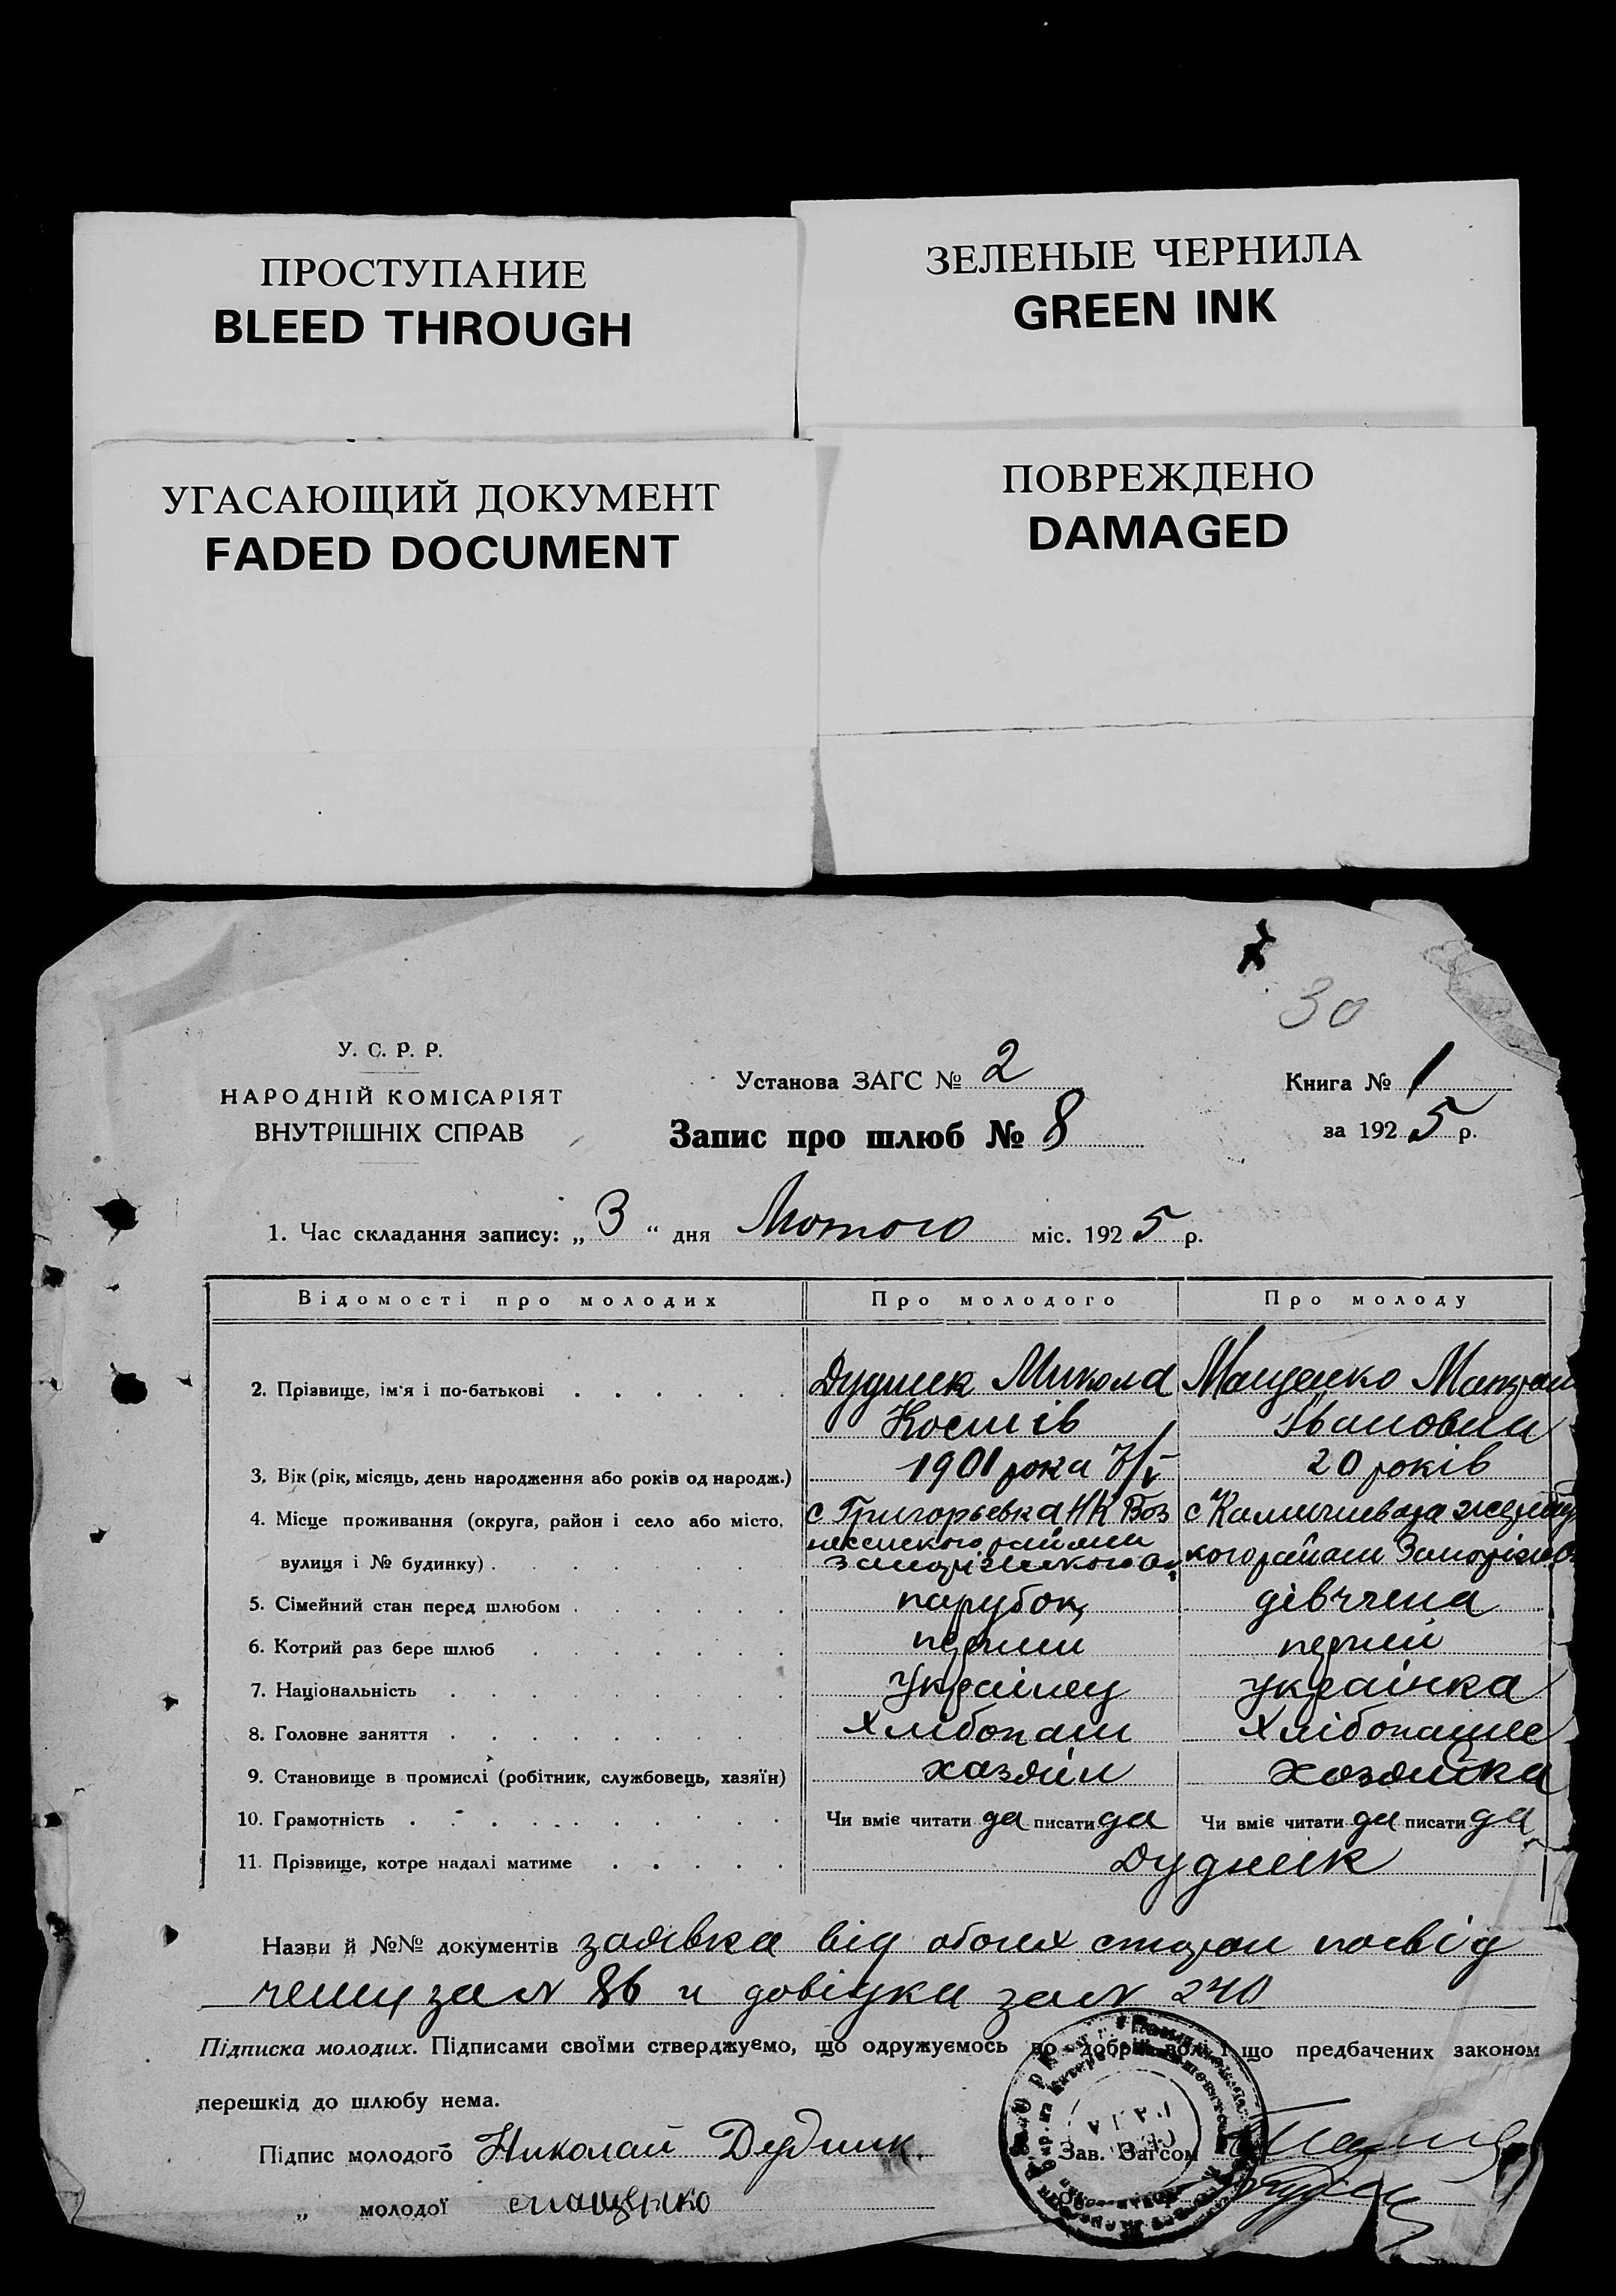 ПРОСТУПАНИЕ
BLEED THROUGH
ЗЕЛЕНЫЕ ЧЕРНИЛА
GREEN INK
УГАСАЮЩИЙ ДОКУМЕНТ
FADED DOCUMENT
ПОВРЕЖДЕНО
DAMAGED
30
У. С. Р. Р.
НАРОДНІЙ КОМІСАРІЯТ
ВНУТРІШНІХ СПРАВ
Установа ЗАГС № 2
Запис про шлюб № 8
Книга № 1
за 1925 р.
1. Час складання запису: „3“ дня Лютого міс. 1925 р.
Відомості про молодих Про молодого Про молоду
2. Прізвище, ім'я і по-батькові Дудник Микола Мащенко
Івановна
3. Вік (рік, місяць, день народження або років од народж.) 1901 рока 20 років
4. Місце проживання (округа, район і село або місто, с Григорьевка НК Воз с
вулиця і № будинку)
5. Сімейний стан перед шлюбом парубок дівчена
6. Котрий раз бере шлюб перший перший
7. Національність Українец українка
8. Головне заняття хлібопаш
9. Становище в промислі (робітник, службовець, хазяїн) хазяїн хозяйка
10. Грамотність Чи вміє читати да писати да Чи вміє читати да писати да
11. Прізвище, котре надалі матиме Дудник
Назви й №№ документів заявка від обоих сторон посвід
за № 86 и довідка за № 240
Підписка молодих. Підписами своїми стверджуємо, що одружуємось по добрій волі і що предбачених законом
перешкід до шлюбу нема.
Підпис молодого Николай Дудник
Зав. Загсом
„ молодої мащенко